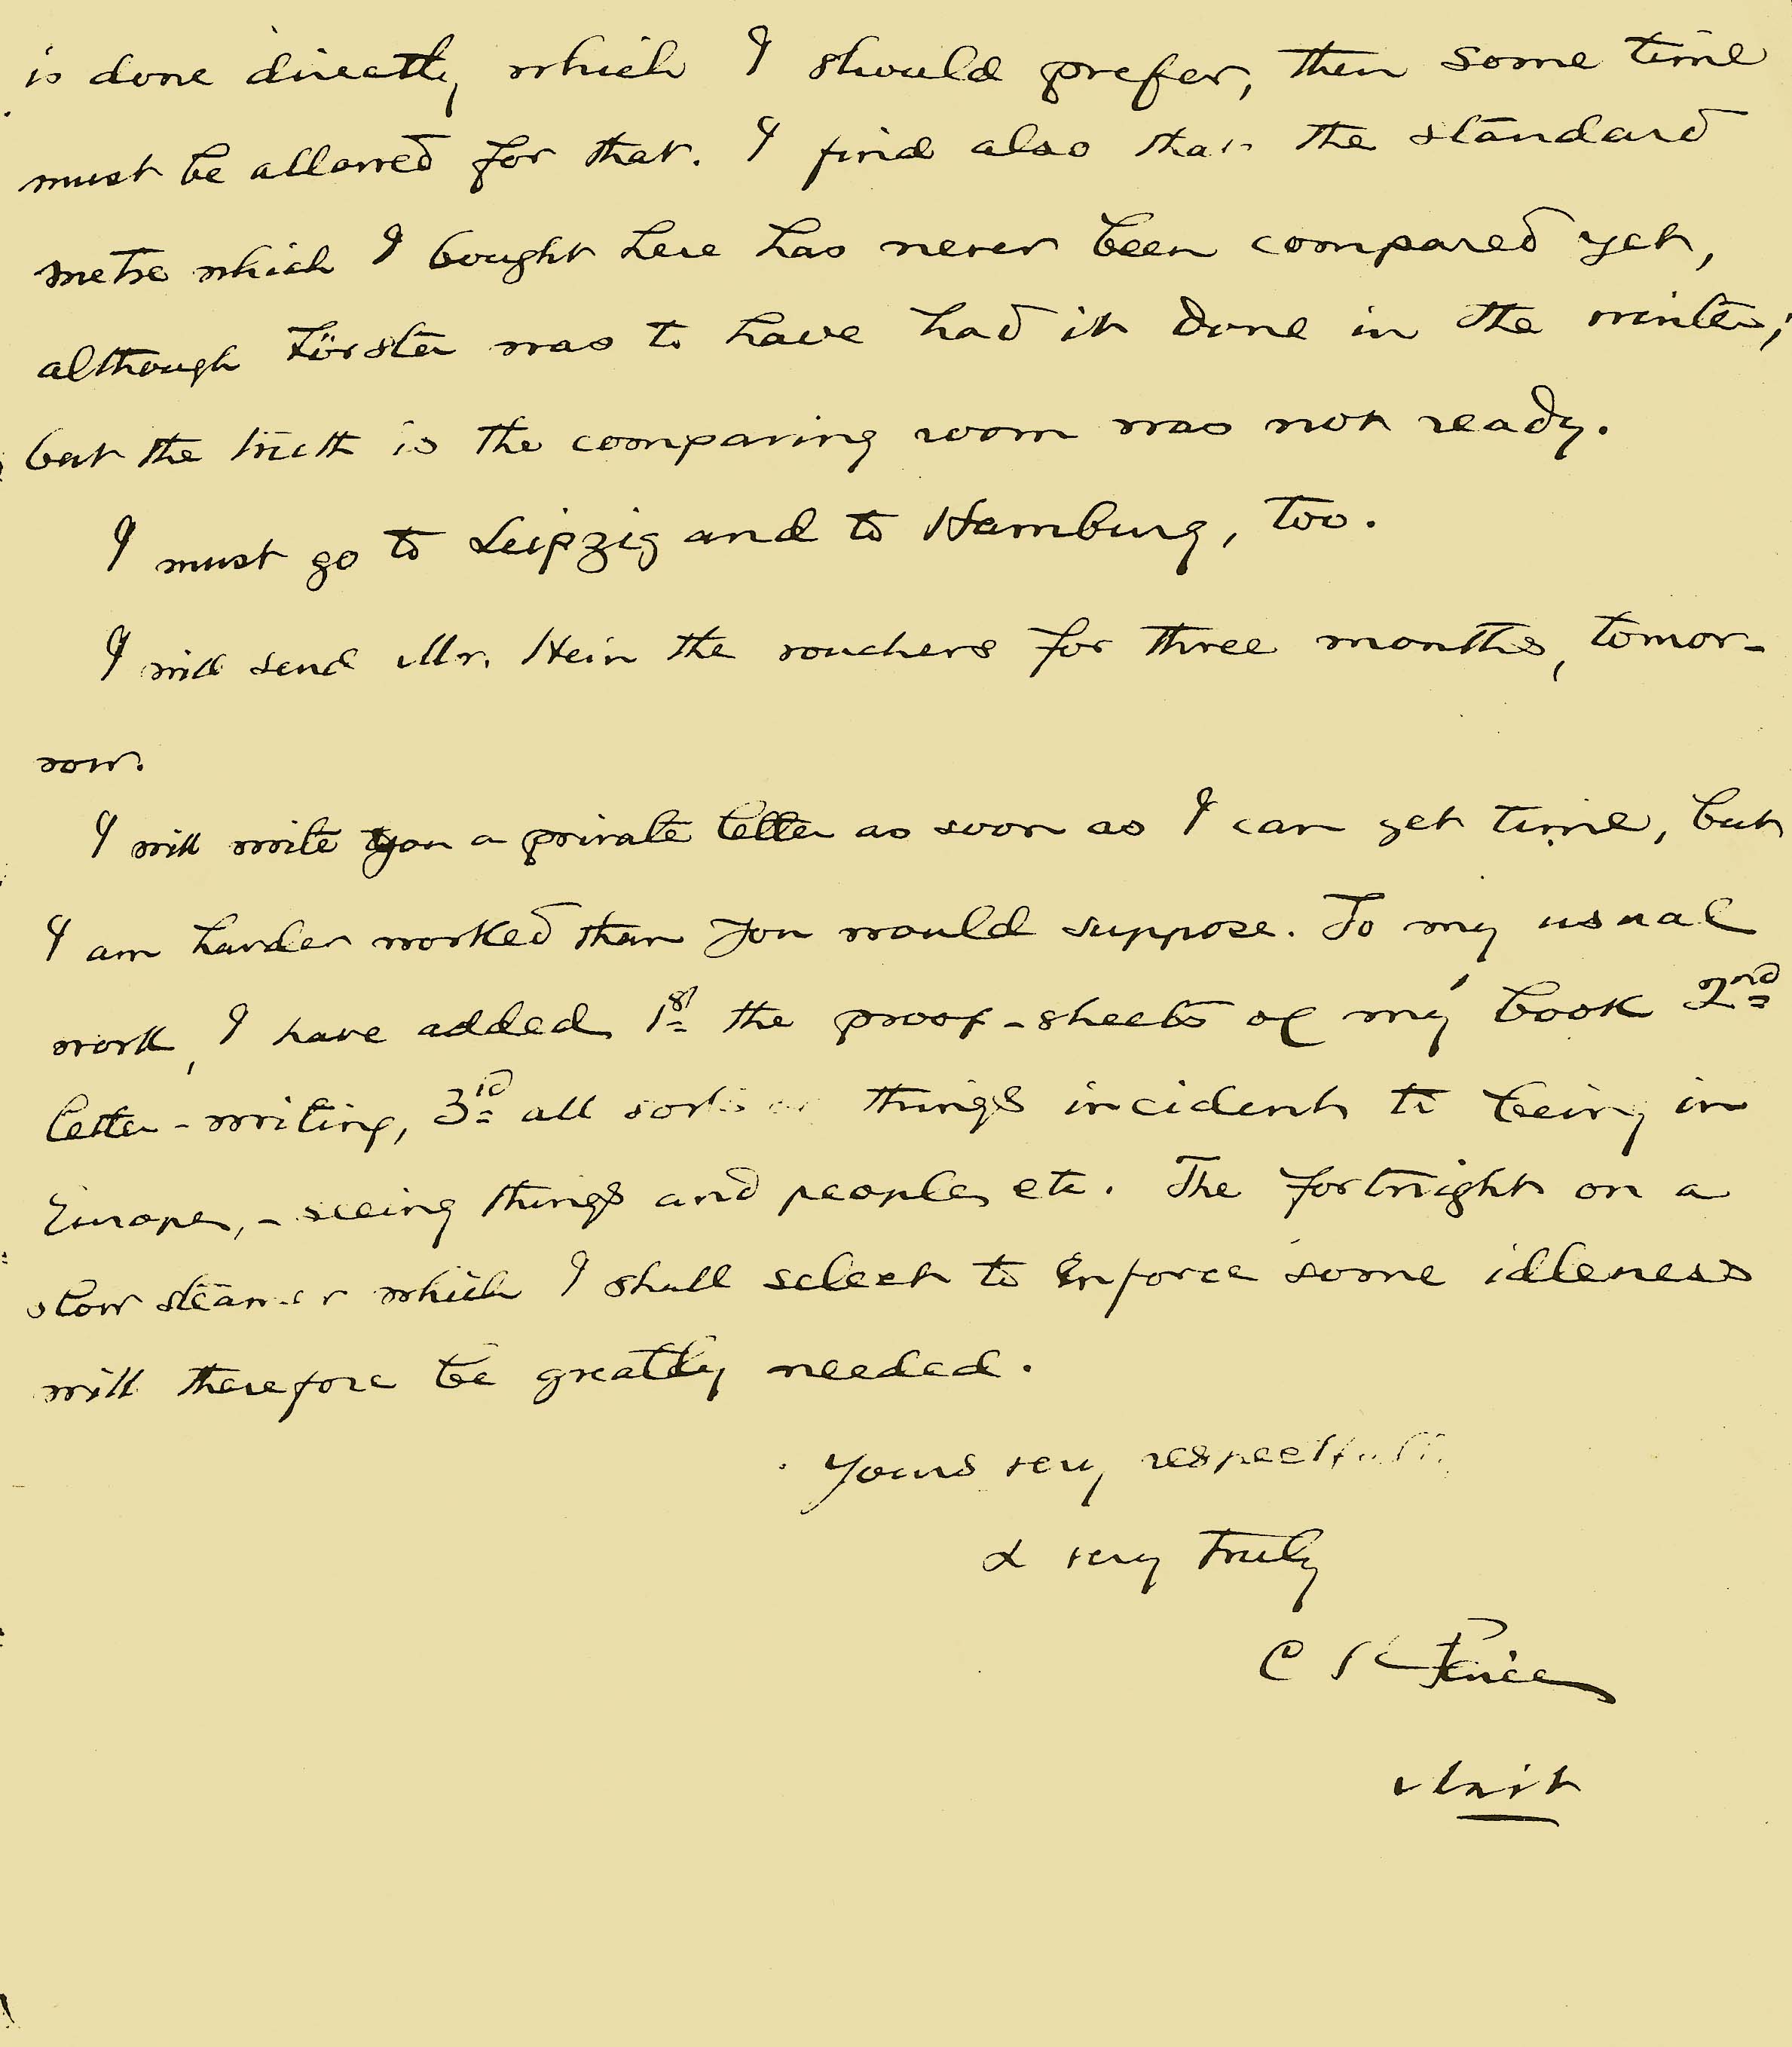 is done directly which I should prefer, then some time
must be allowed for that. I find also that the standard
metre which I bought here has never been compared yet,
although Förster was to have had it done in the winter;
but the truth is the comparing room was not ready.
I must go to Leipzig and to Hamburg, too.
I will send Mr. Hein the vouchers for three months, tomor-
row.
I will write you a private letter as soon as I can get time, but
I am harder worked than you would suppose. To my usual
work, I have added 1st the proof-sheets of my book 2nd
letter-writing, 3rd all sorts of things incident to being in
Europe, - seeing things and people, etc. The fortnight on a
slow steamer which I shall select to enforce some idleness
will therefore be greatly needed.
Yours very respectfully
& very truly
C S Peirce
Assist